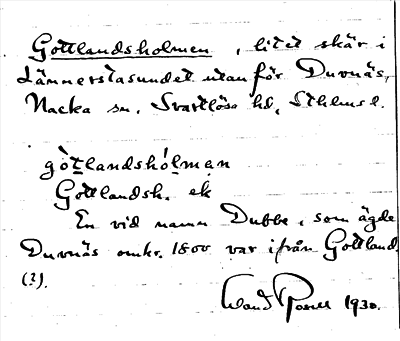 Gottlandsholmen, litet skär i
Lännerstasundet utanför Duvnäs,
Nacka sn. Svartlösa hd, Sthlms l.
gòtlandshólmǝn
Gottlandsh. ek
En vid namn Dubbe, som ägde
Duvnäs omkr. 1800 var ifrån Gottland
(?).
1930.